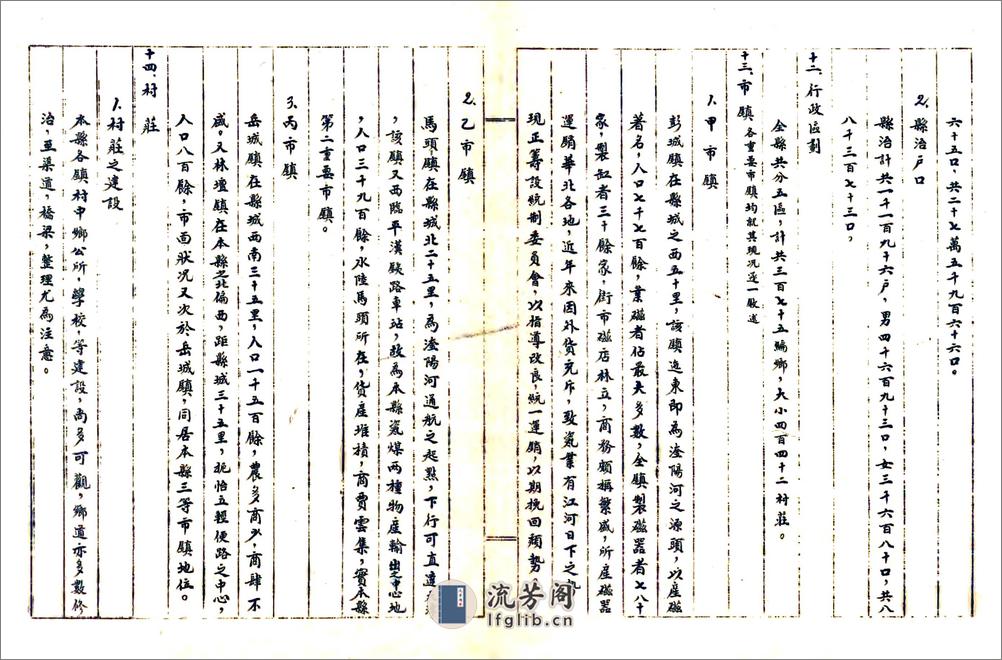 六十五口，共二十七萬五千九百六十六口。
2.縣治户口
縣治計共一千一百九十六户，男四千六百九十三口，女三千六百八十口，共八
八千三百七十三口，
十二、行政區劃
全縣共分五區，計共三百七十五編鄉，大小四百四十二村莊。
十三、市鎮 各重要市鎮均就其現况逐一敘述
1.甲市鎮
彭城鎮在縣城之西五十里，該鎮迤東即為滏陽河之源頭，以産磁
著名，人口七千七百餘，業磁者佔最大多數，全鎮製磁器者七八十
家，製缸者三十餘家，街市磁店林立，商務頗稱繁盛，所産磁器
運銷華北各地，近年來因外貨充斥，致瓷業有江河日下之
現正籌設統制委員會，以指導改良，統一運銷，以期挽回頹勢
2.乙市鎮
馬頭鎮在縣城北二十五里，為滏陽河通航之起點，下行可直達
，該鎮又西臨平漢鉄路車站，故為本縣瓷煤兩種物産輸出之中心地
，人口三千九百餘，水陸馬頭所在，貨産堆積，商賈雲集，實本縣
第二重要市鎮。
3.丙市鎮
岳城鎮在縣城西南三十五里，人口一千五百餘，農多商少，商肆不
盛。又林壇鎮在本縣之北偏西，距縣城三十五里，扼怡立輕便路之中心，
人口八百餘，市面狀况又次於岳城鎮，同居本縣三等市鎮地位。
十四、村莊
1.村莊之建設
本縣各鎮村中鄉公所，學校，等建設，尚多可觀，鄉道亦多數修
治，至渠道，橋梁，整理尤為注意。
流芳阁
lfglib.cn